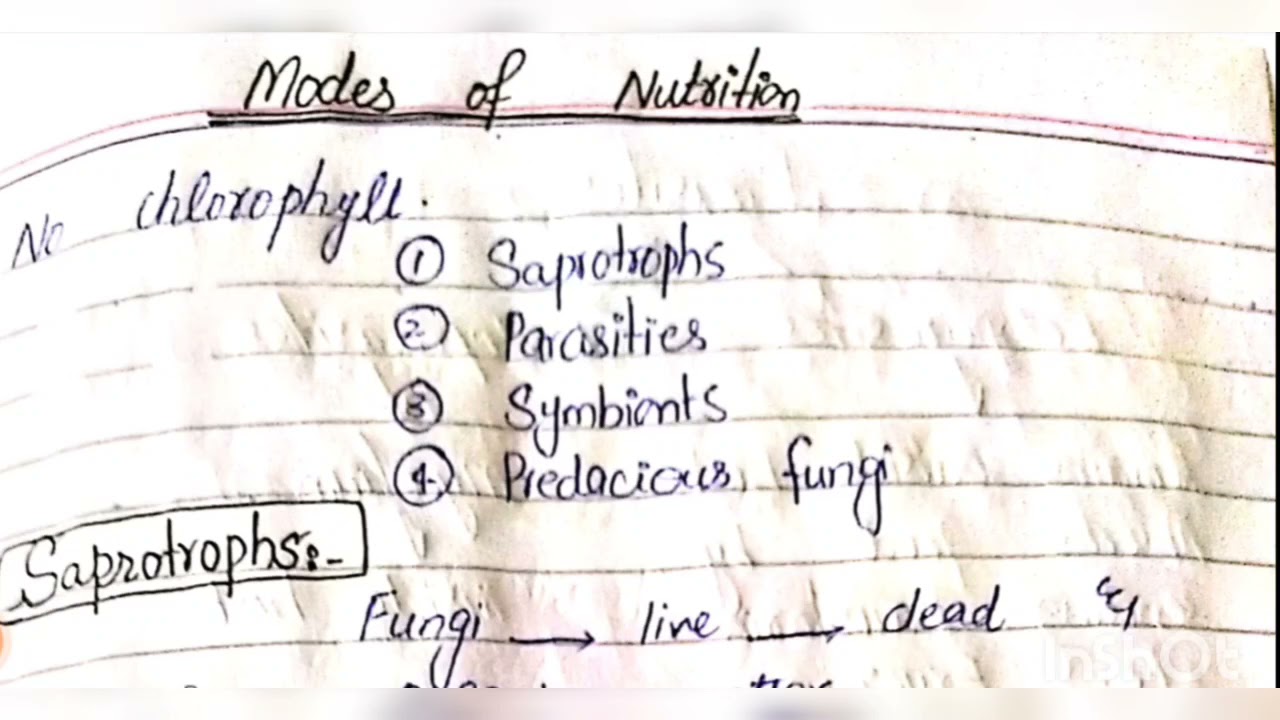 Modes of Nutrition
No chlorophyll.
① Saprotrophs
② Parasities
③ Symbionts
④ Predacious fungi
Saprotrophs:-
Fungi → live → dead &
InShOt